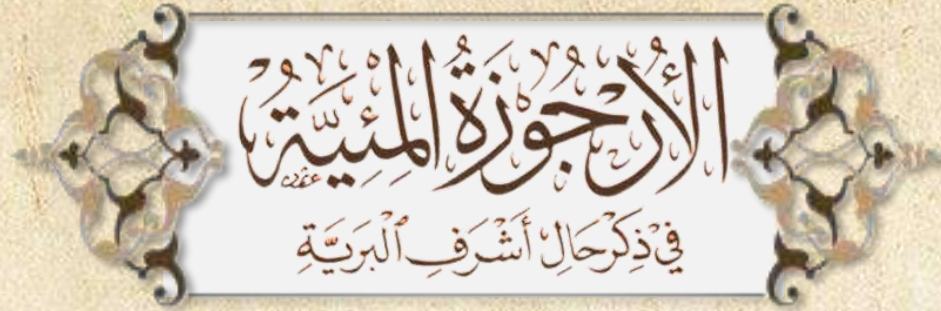 الْأُرْجُوزَةُ الْمِئِيَّةُ
فِي ذِكْرِ حَالِ أَشْرَفِ ٱلْبَرِيَّةِ